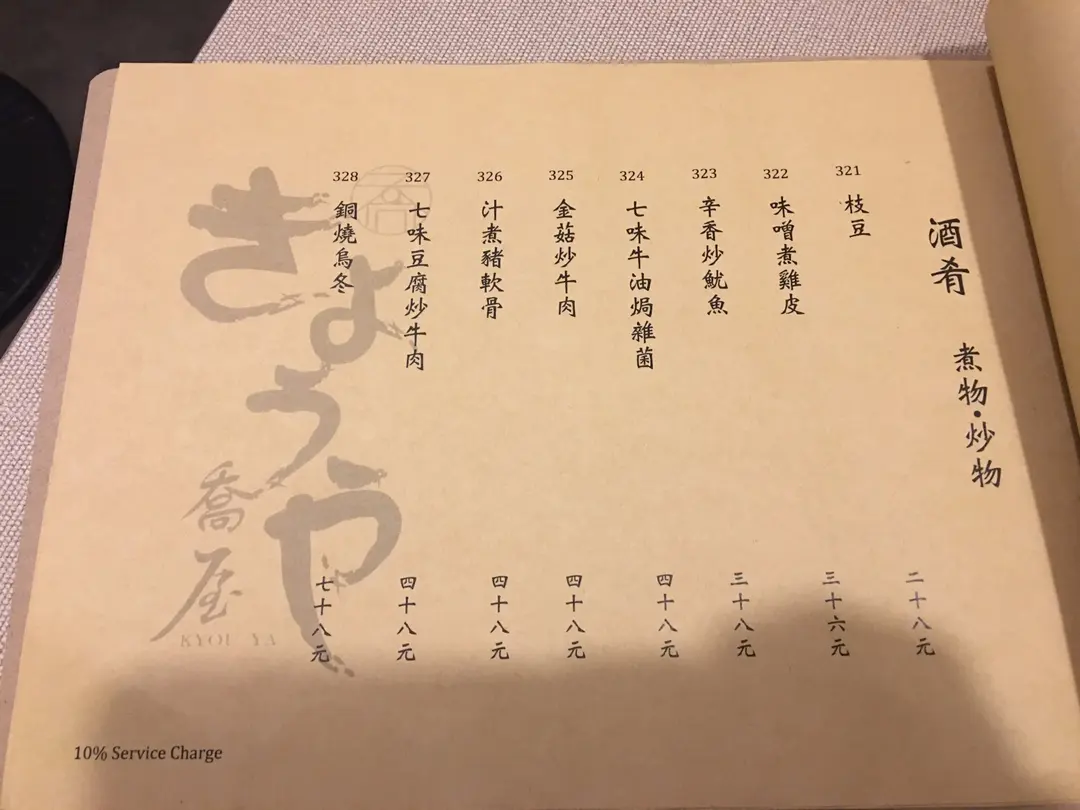 酒肴 煮物・炒物
321 枝豆 二十八元
322 味噌煮雞皮 三十六元
323 辛香炒魷魚 三十八元
324 七味牛油焗雜菌 四十八元
325 金菇炒牛肉 四十八元
326 汁煮豬軟骨 四十八元
327 七味豆腐炒牛肉 四十八元
328 銅燒烏冬 七十八元
喬
きょうや
喬屋
KYOU YA
10% Service Charge